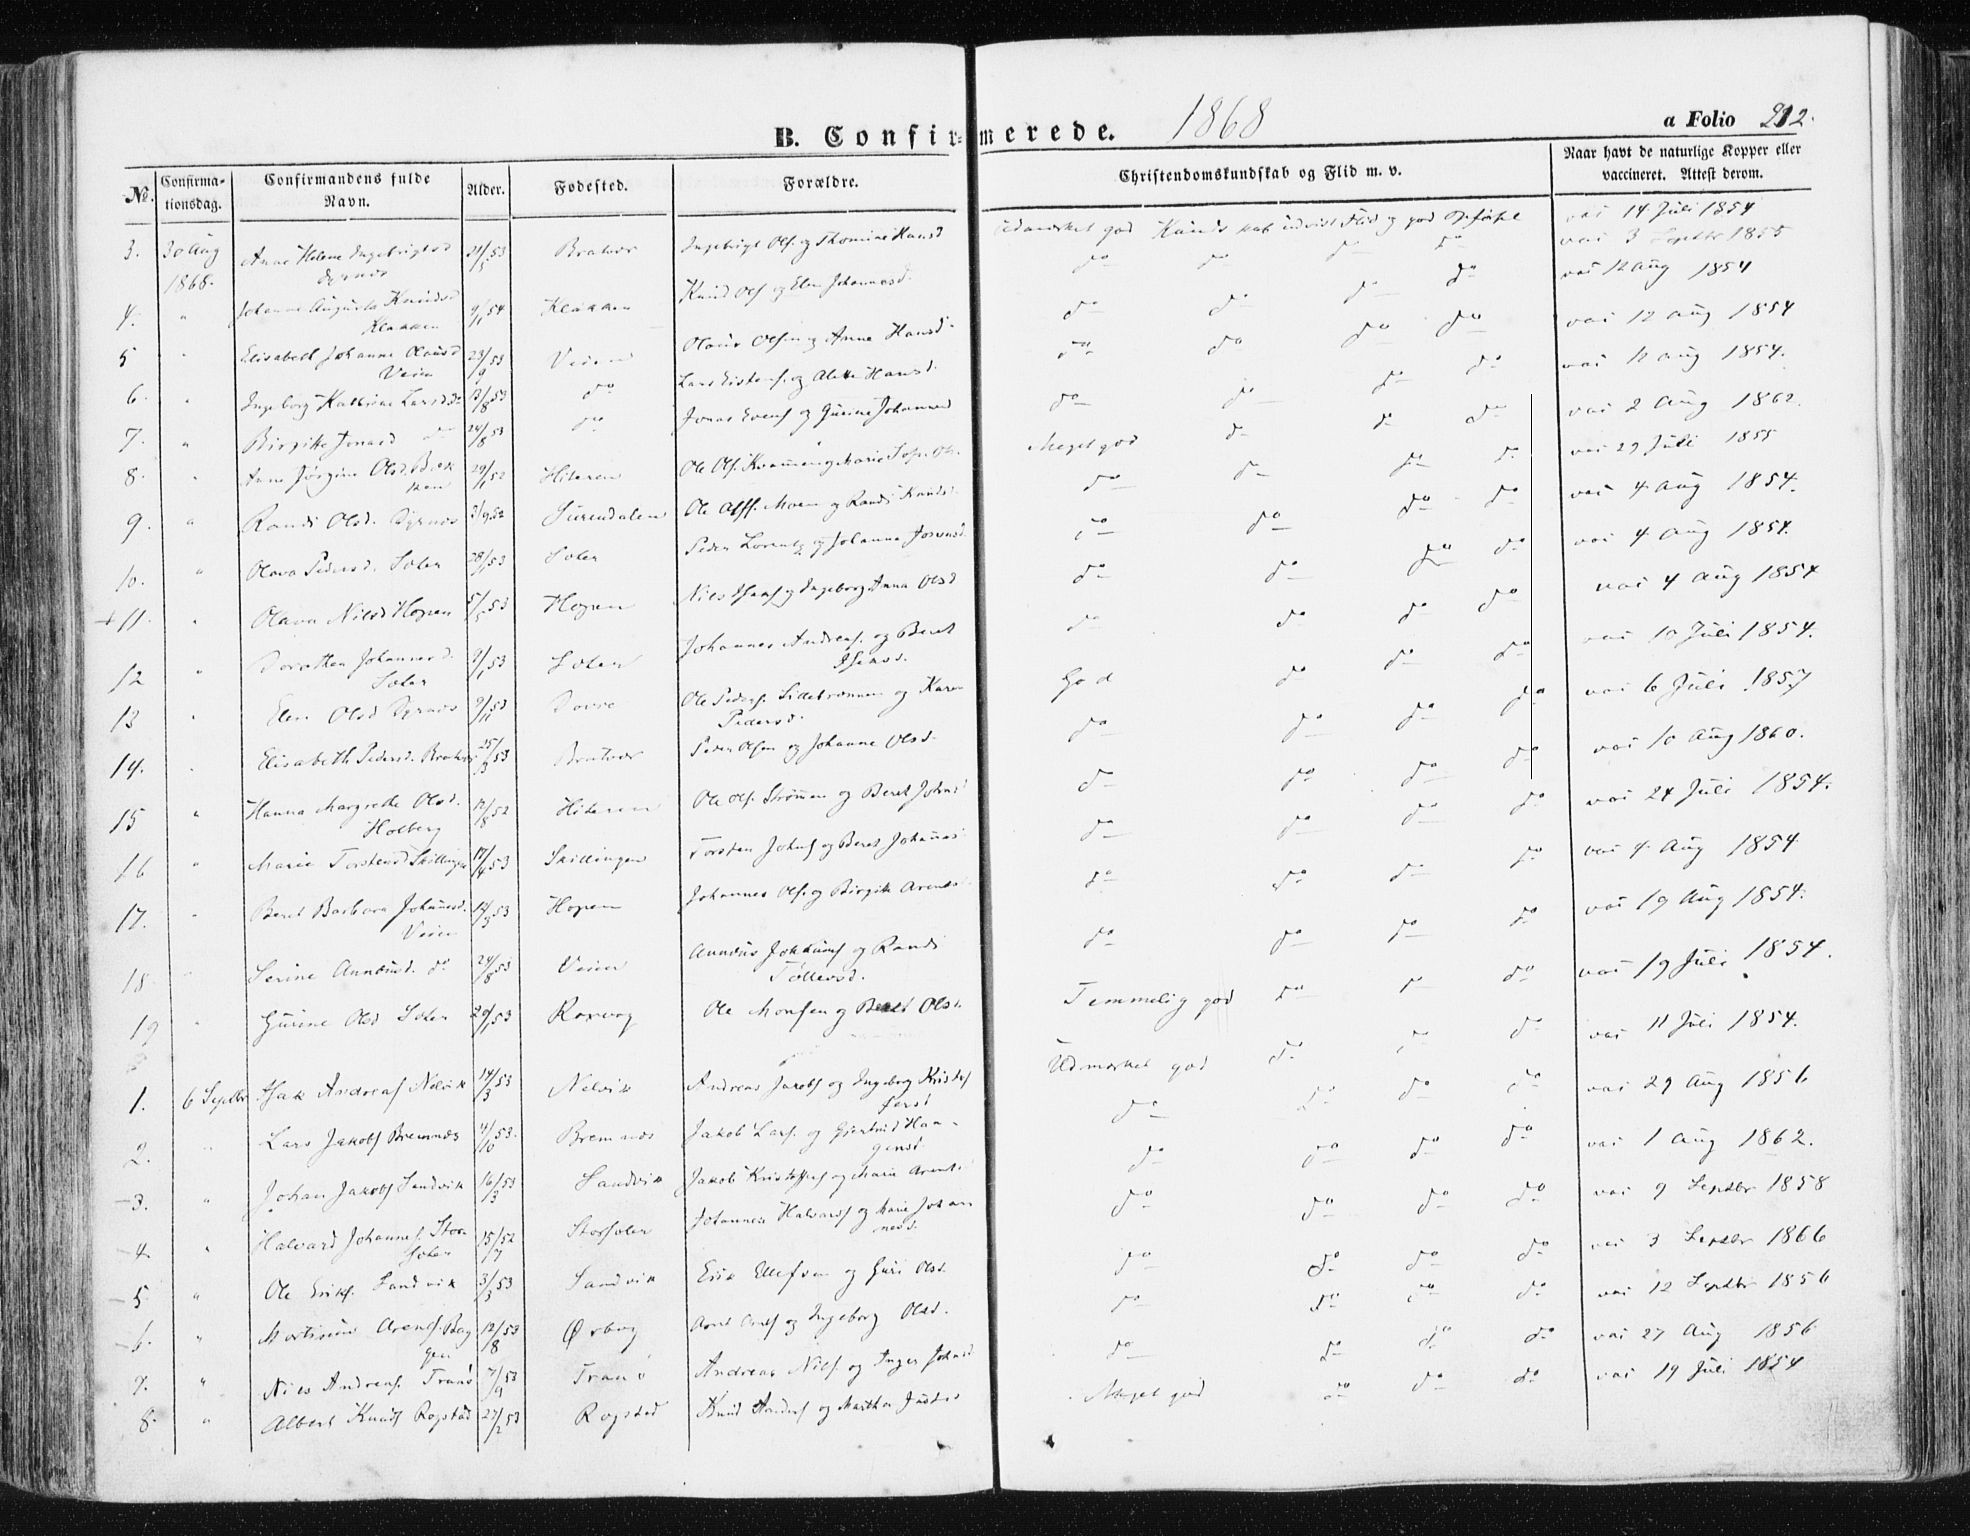 B. Confirmerede. 1868 a Folio 212.
No. Confirmationsdag. Confirmandens fulde Navn. Alder. Fødested. Forældre. Christendomskundskab og Flid m. v. Naar havt de naturlige Kopper eller vaccineret. Attest derom.
3. 30 Aug 1868. Anne Helene Ingebrigtsd Dyrnæs 21/5 53 Bratvær Ingebrigt Ols. og Thomine Hansd Udmærket god Kundskab udvist Flid og god Opførsel vac 14 Juli 1854
4. " Johanne Augusta Knudsd Klakken 9/1 54 Klakken Knud Ols og Elen Johannesd. do do do do vac 3 Septbr 1855
5 " Elisabeth Johanne Olausd Veien 23/9 53 Veien Olaus Olsen og Anne Hansd. do do do do vac 12 Aug 1854
6. " Ingeborg Kathrine Larsd do 13/8 53 do Lars og Aletta Hansd. do do do do vac 12 Aug 1854
7. " Birgitte Jonasd do 24/8 53 do Jonas Evens og Gurine Johannesd do do do do vac 12 Aug 1854.
8. " Anne Jørgine Olsd. Bækken 29/1 52 Hiteren Ole Ols. Kvammen og Marie Meget god do do do vac 2 Aug 1862.
9. " Randi Olsd. Dyrnæs 3/9 52 Surendalen Ole Moen og Randi Knudsd. do do do do vac 29 Juli 1855
10. " Olava Pedersd. Solem 28/1 53 Solem Peder Lorentz og Johanna do do do do vac 4 Aug 1854.
+ 11. " Olava Nilsd Hopen 5/5 53 Hopen Nils Isaks og Ingeborg Anna Olsd do do do do vac 4 Aug 1854.
12 " Dorothea Johannesd. Solem 9/1 53 Solem Johannes Andreas. og Beret Isaksd. do do do do vac 4 Aug 1854
13 " Elen Olsd Dyrnæs 9/11 53 Dovre Ole Peders. og Karen Pedersd. God do do do vac 10 Juli 1854.
14. " Elisabeth Pedersd. Bratvær 25/3 53 Bratvær Peder Olsen og Johanne Olsd. do do do do vac 6 Juli 1857
15 " Hanna Margrethe Olsd. Holberg 12/8 52 Hiteren Ole Ols. Strømmen og Beret Johnsd do do do do vac 10 Aug 1860.
16 " Marie Torstensd Skillingen 17/4 53 Skillingen Torsten Johns og Beret Johannesd do do do do vac 24 Juli 1854.
17. " Beret Barbara Johannesd. Veien 14/3 53 Hopen Johannes Ols. og Birgitte Arentsd do do do do vac 4 Aug 1854
18 " Serine do 24/8 53 Veien og Randi Tollevsd. do do do do vac 19 Aug 1854.
19 " Gurine Olsd Solem 20/1 53 Roxvog Ole Monsen og Beret Olsd. Temmelig god do do do vac 19 Juli 1854.
1. 6 Septbr Isak Andreas Nelvik 14/3 53 Nelvik Andreas Jakobs og Ingeborg Kristoffersd Udmærket god do do do vac 11 Juli 1854.
2. " Lars Jakobs Bremnæs 4/10 53. Bremnæs Jakob Lars. og Gjertrud Haagensd do do do do vac 29 Aug 1856
3. " Johan Jakobs Sandvik 16/3 53 Sandvik Jakob Kristoffers og Marie Arentsd do do do do vac 1 Aug 1862.
4. " Halvard Johannes. Storsolen 15/7 52 Storsolen Johannes Halvards og Marie Johannesd. do do do do vac 9 Septbr 1858
5 " Ole Eriks. Sandvik 3/3 53 Sandvik Erik Ellefsen og Guri Olsd. do do do do vac 3 Septbr 1866
6. " Mortinus Arents. 12/8 53 Ørbog Arnt Arnts og Ingeborg Olsd. do do do do vac 12 Septbr 1856
7. " Nils Andreas. Tranø 7/9 53 Tranø Andreas Nils. og Inger Johnsd do do do do vac 27 Aug 1856
8. " Albert Knuds Rogstad 27/2 53 Rogstad Knud Anders og Martha Meget god do do do vac 19 Juli 1854